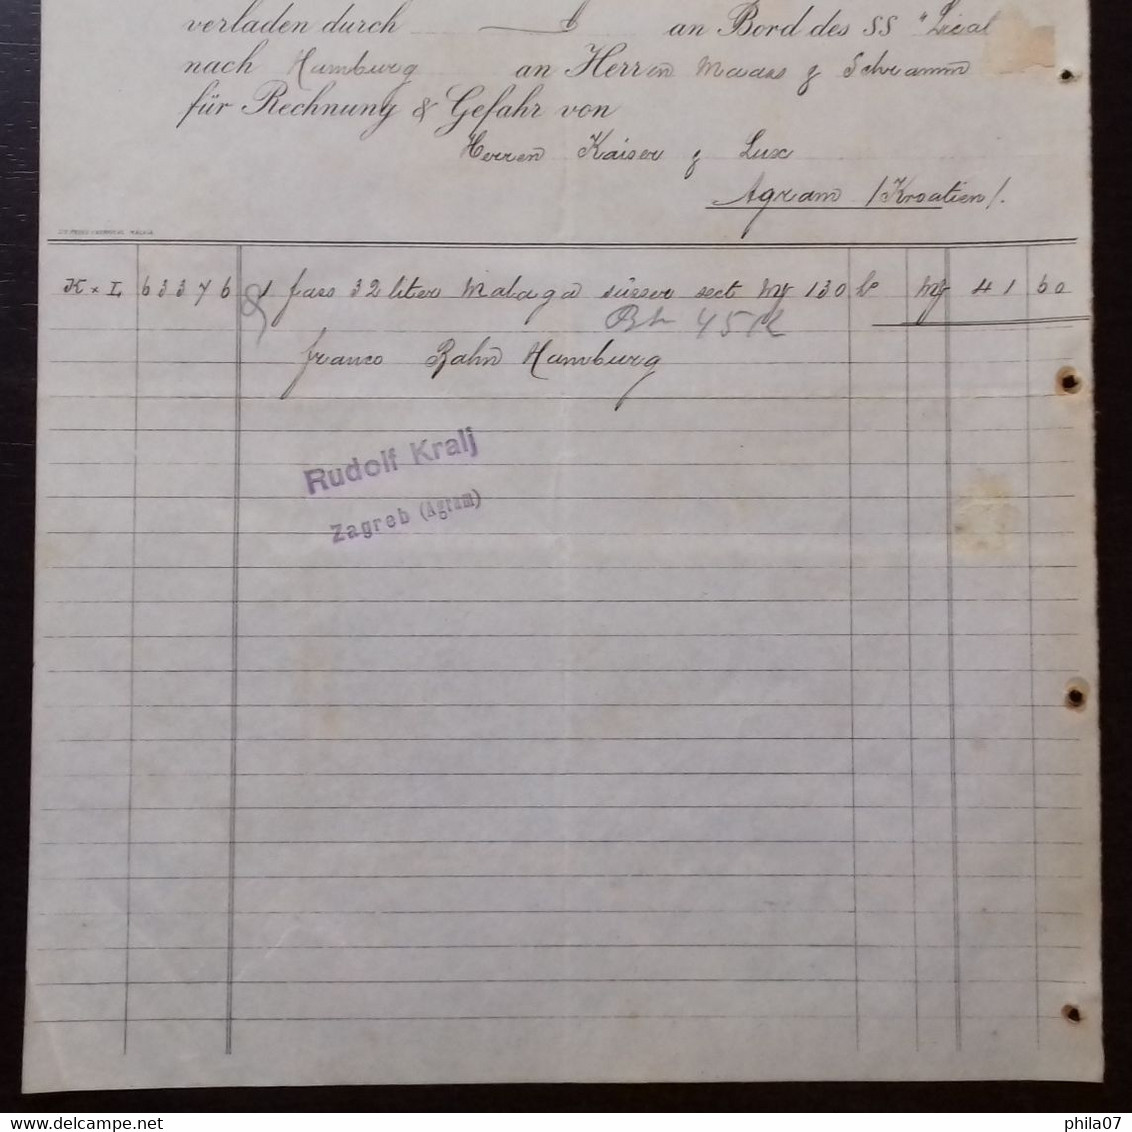 verladen durch an Bord des SS "
nach Hamburg an Herren Maass & Schramm
für Rechnung & Gefahr von
Herren Kaiser & Lux
Agram /Kroatien/.
K x L 63376 1 fass 32 liter Malaga süsser sect Mk 130 Mk 41 60
45
franco Bahn Hamburg
Rudolf Kralj
Zagreb (Agram)
phila07